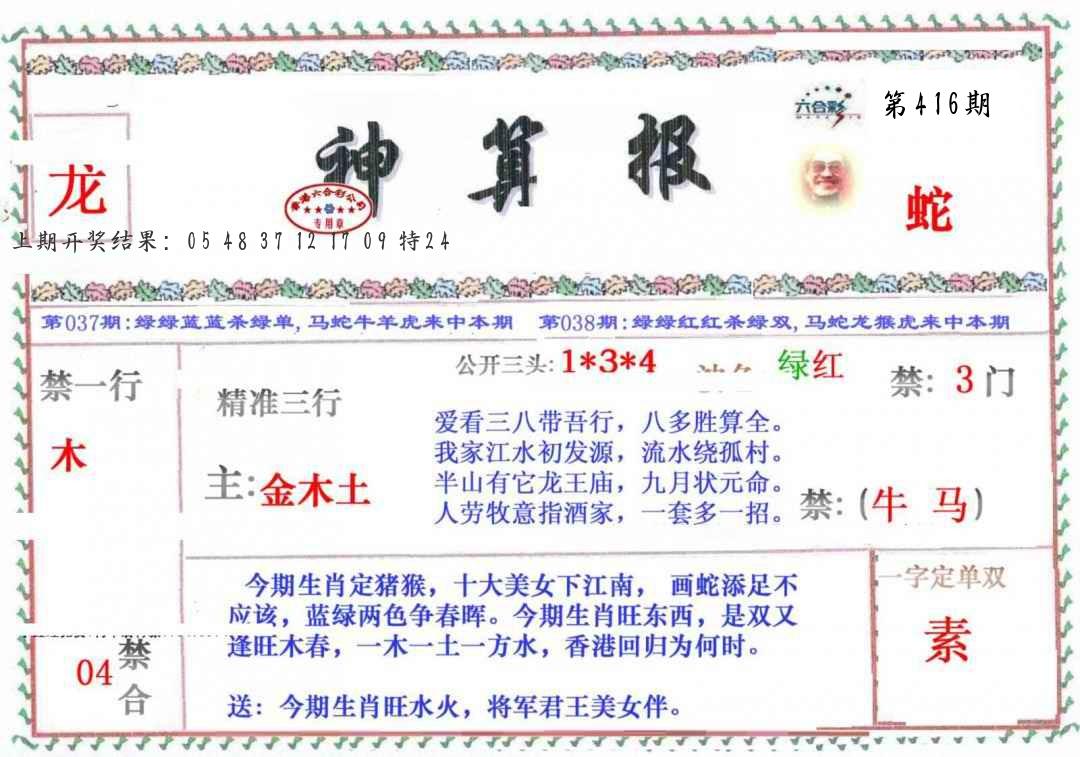 六合彩
第416期
神算报
香港六合彩公司
专用章
龙
蛇
上期开奖结果：05 48 37 12 17 09 特24
第037期:绿绿蓝蓝杀绿单,马蛇牛羊虎来中本期
第038期:绿绿红红杀绿双,马蛇龙猴虎来中本期
禁一行
木
公开三头:1*3*4
绿红
禁: 3门
精准三行
主:金木土
爱看三八带吾行，八多胜算全。
我家江水初发源，流水绕孤村。
半山有它龙王庙，九月状元命。
人劳牧意指酒家，一套多一招。
禁:(牛 马)
今期生肖定猪猴，十大美女下江南， 画蛇添足不
应该，蓝绿两色争春晖。今期生肖旺东西，是双又
逢旺木春，一木一土一方水，香港回归为何时。
送：今期生肖旺水火，将军君王美女伴。
一字定单双
素
04
禁合